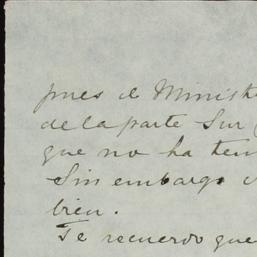 pues el Minist
de la parte Sur
que no ha ten
Sin embargo
bien.
Te recuerdo que